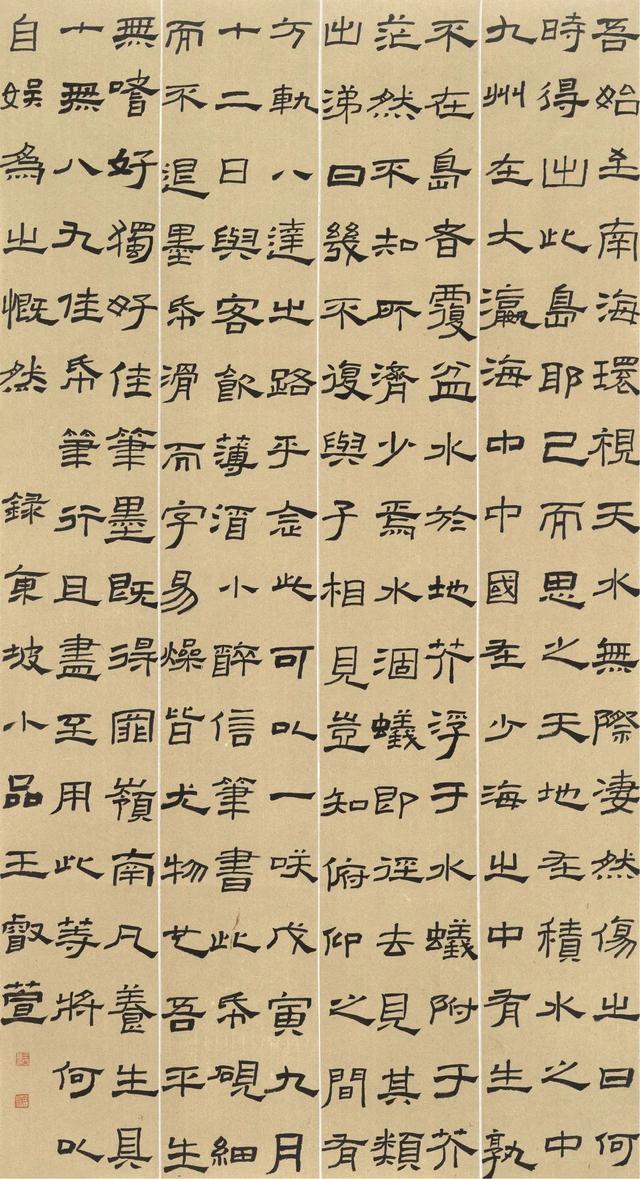 吾始至南海環視天水無際淒然傷之曰何
時得出此島耶已而思之天地在積水之中
九州在大瀛海中中國在少海之中有生孰
不在島者覆盆水於地芥浮于水蟻附于芥
茫然不知所濟少焉水涸蟻即徑去見其類
出涕曰幾不復與子相見豈知俯仰之間有
方軌八達之路乎念此可以一咲戊寅九月
十二日與客飲薄酒小醉信筆書此帋硯細
而不退墨帋滑而字易燥皆尤物也吾平生
無嗜好獨好佳筆墨既得罪嶺南凡養生具
十無八九佳帋筆行且盡至用此等將何以
自娛為之慨然 録東坡小品王叡萱